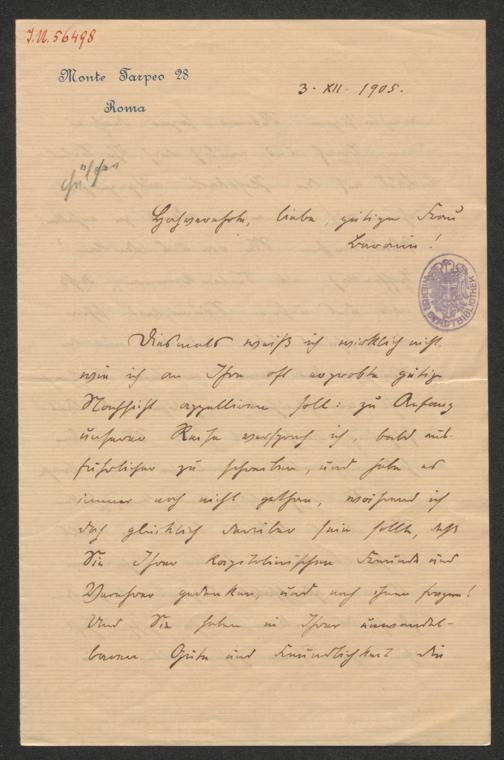 I.N. 56498
Monte Tarpeo 28
Roma
3. XII. 1905.
Hülsen
Hochverehrte, liebe, gütige Frau
Baronin!
WIENER STADTBIBLIOTHEK
Diesmals weiß ich wirklich nicht
wie ich an Ihre oft erprobte gütige
Nachsicht appellieren soll: zu Anfang
unserer Reise versprach ich, bald aus-
führlicher zu schreiben, und habe es
immer noch nicht gethan, während ich
doch glücklich darüber sein sollte, daß
Sie Ihrer kapitolinischen Freunde und
Verehrer gedenken, und nach ihnen fragen!
Und Sie haben in Ihrer unwandel-
baren Güte und Freundlichkeit die